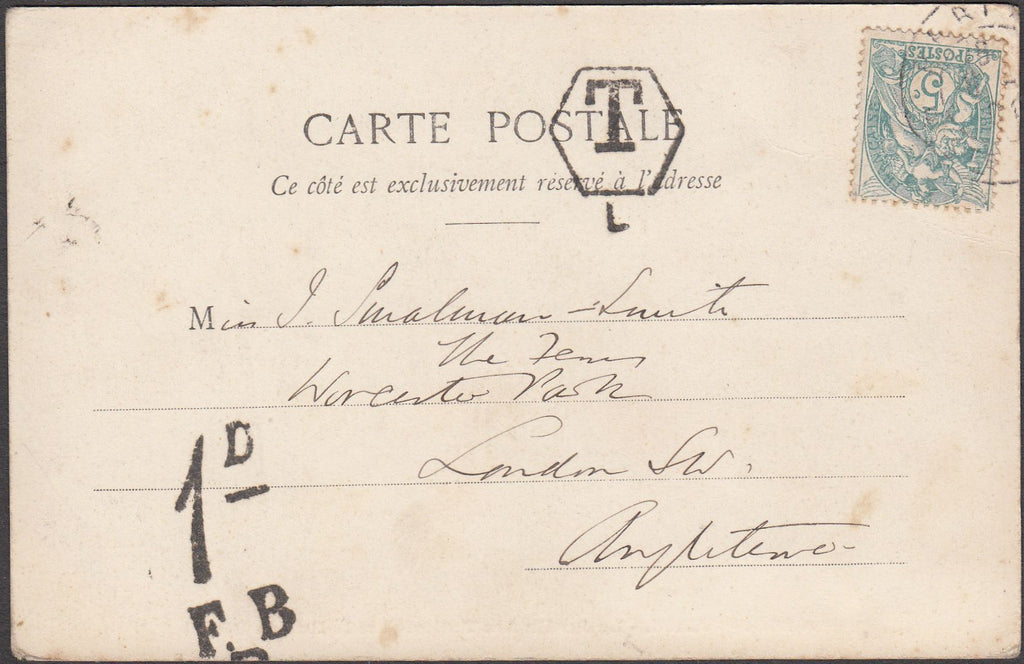 CARTE POSTALE
T
Ce côté est exclusivement réservé à l'adresse
POSTES
5
Miss J. Smalman-Smith
The
Worcester Park
London SW.
Angleterre
1D
F.B